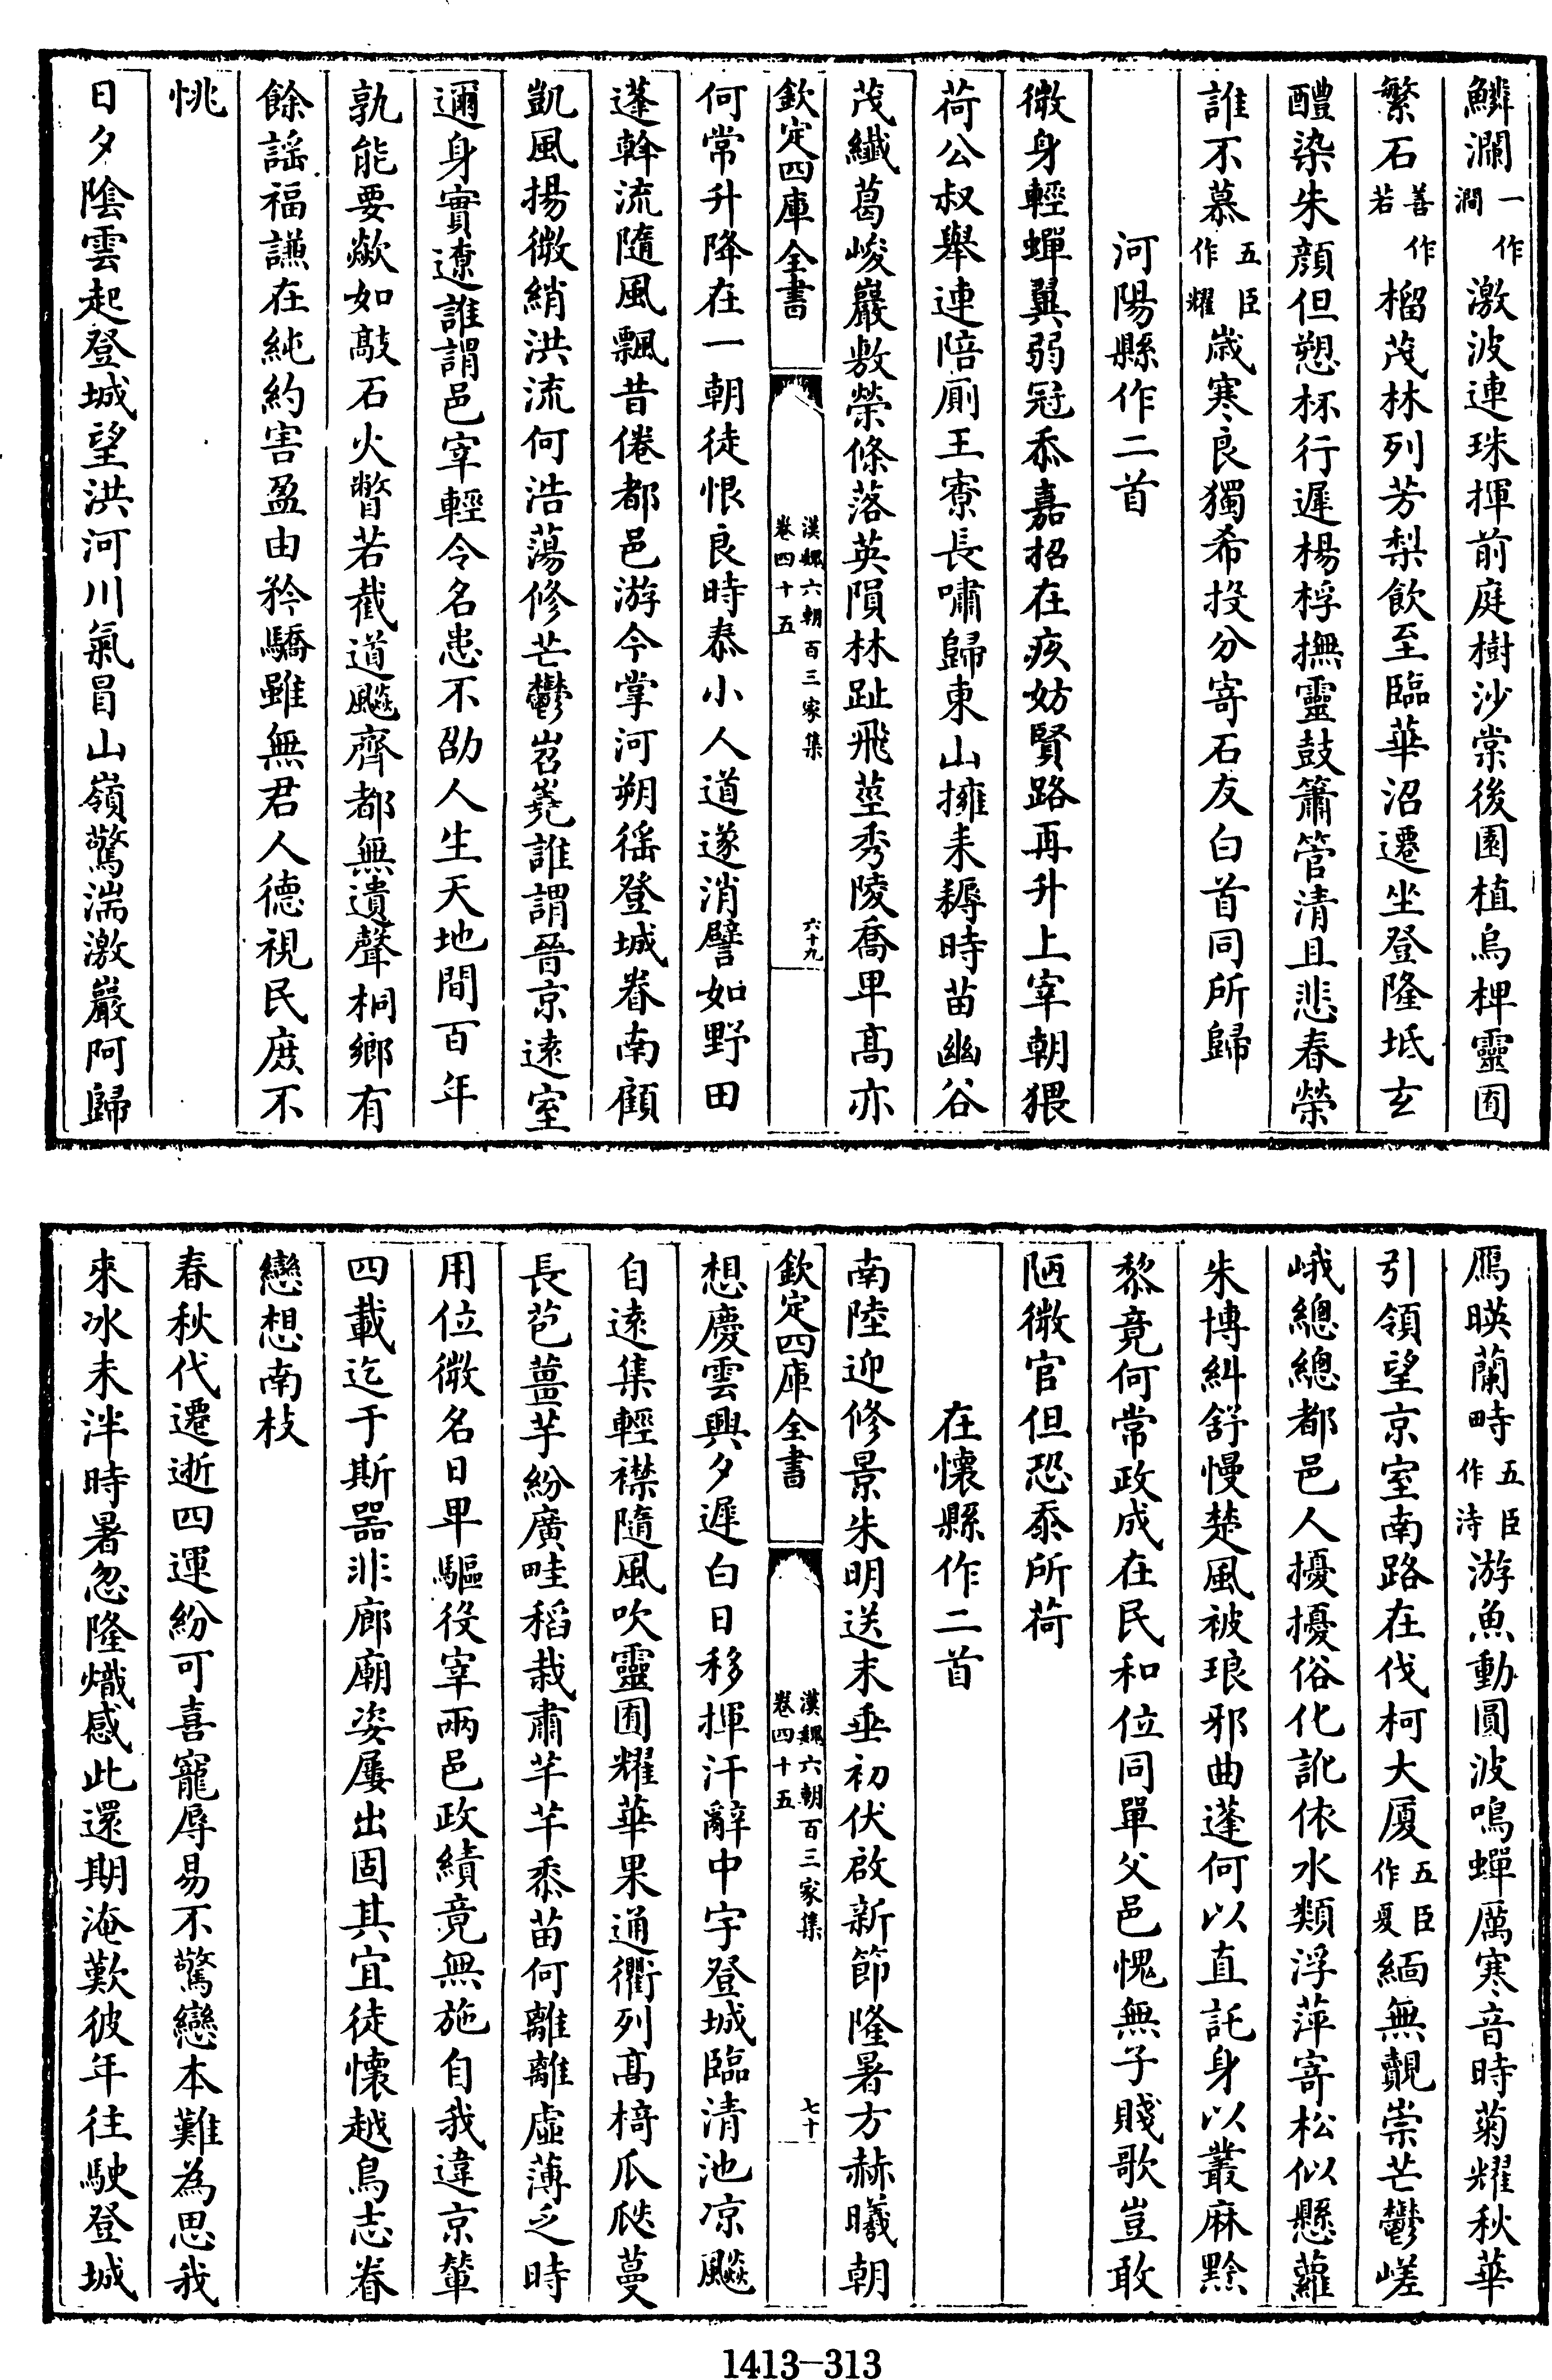 鱗瀾一作澗激波連珠揮前庭樹沙棠後園植烏椑靈囿
繁石善作若榴茂林列芳梨飲至臨華沼遷坐登隆坻玄
醴染朱顏但愬杯行遲楊桴撫靈鼓簫管清且悲春榮
誰不慕五臣作耀歲寒良獨希投分寄石友白首同所歸
河陽縣作二首
微身輕蟬翼弱冠忝嘉招在疚妨賢路再升上宰朝猥
荷公叔舉連陪廁王寮長嘯歸東山擁耒耨時苗幽谷
茂纖葛峻巖敷榮條落英隕林趾飛莖秀陵喬卑高亦
欽定四庫全書
漢魏六朝百三家集
卷四十五
六十九
何常升降在一朝徒恨良時泰小人道遂消譬如野田
蓬斡流隨風飄昔倦都邑游今掌河朔徭登城眷南顧
凱風揚微綃洪流何浩蕩修芒鬱岧嶤誰謂晉京遠室
邇身實遼誰謂邑宰輕令名患不劭人生天地間百年
孰能要歘如敲石火瞥若截道飈齊都無遺聲桐鄉有
餘謡福謙在純約害盈由矜驕雖無君人德視民庶不
恌
日夕陰雲起登城望洪河川氣冒山嶺驚湍激巖阿歸
鴈暎蘭畤五臣作涛游魚動圓波鳴蟬厲寒音時菊耀秋華
引領望京室南路在伐柯大厦五臣作夏緬無覿崇芒鬱嵯
峨總總都邑人擾擾俗化訛依水類浮萍寄松似懸蘿
朱博糾舒慢楚風被琅邪曲蓬何以直託身以叢麻黔
黎竟何常政成在民和位同單父邑愧無子賤歌豈敢
陋微官但恐忝所荷
在懷縣作二首
南陸迎修景朱明送末垂初伏啟新節隆暑方赫曦朝
欽定四庫全書
漢魏六朝百三家集
卷四十五
七十
想慶雲興夕遲白日移揮汗辭中宇登城臨清池凉飈
自遠集輕襟隨風吹靈囿耀華果通衢列高椅瓜瓞蔓
長苞薑芋紛廣畦稻栽肅芊芊黍苗何離離虛薄乏時
用位微名日卑驅役宰兩邑政績竟無施自我違京輦
四載迄于斯器非廊廟姿屢出固其宜徒懷越鳥志眷
戀想南枝
春秋代遷逝四運紛可喜寵辱易不驚戀本難為思我
來冰未泮時暑忽隆熾感此還期淹歎彼年往駛登城
1413—313